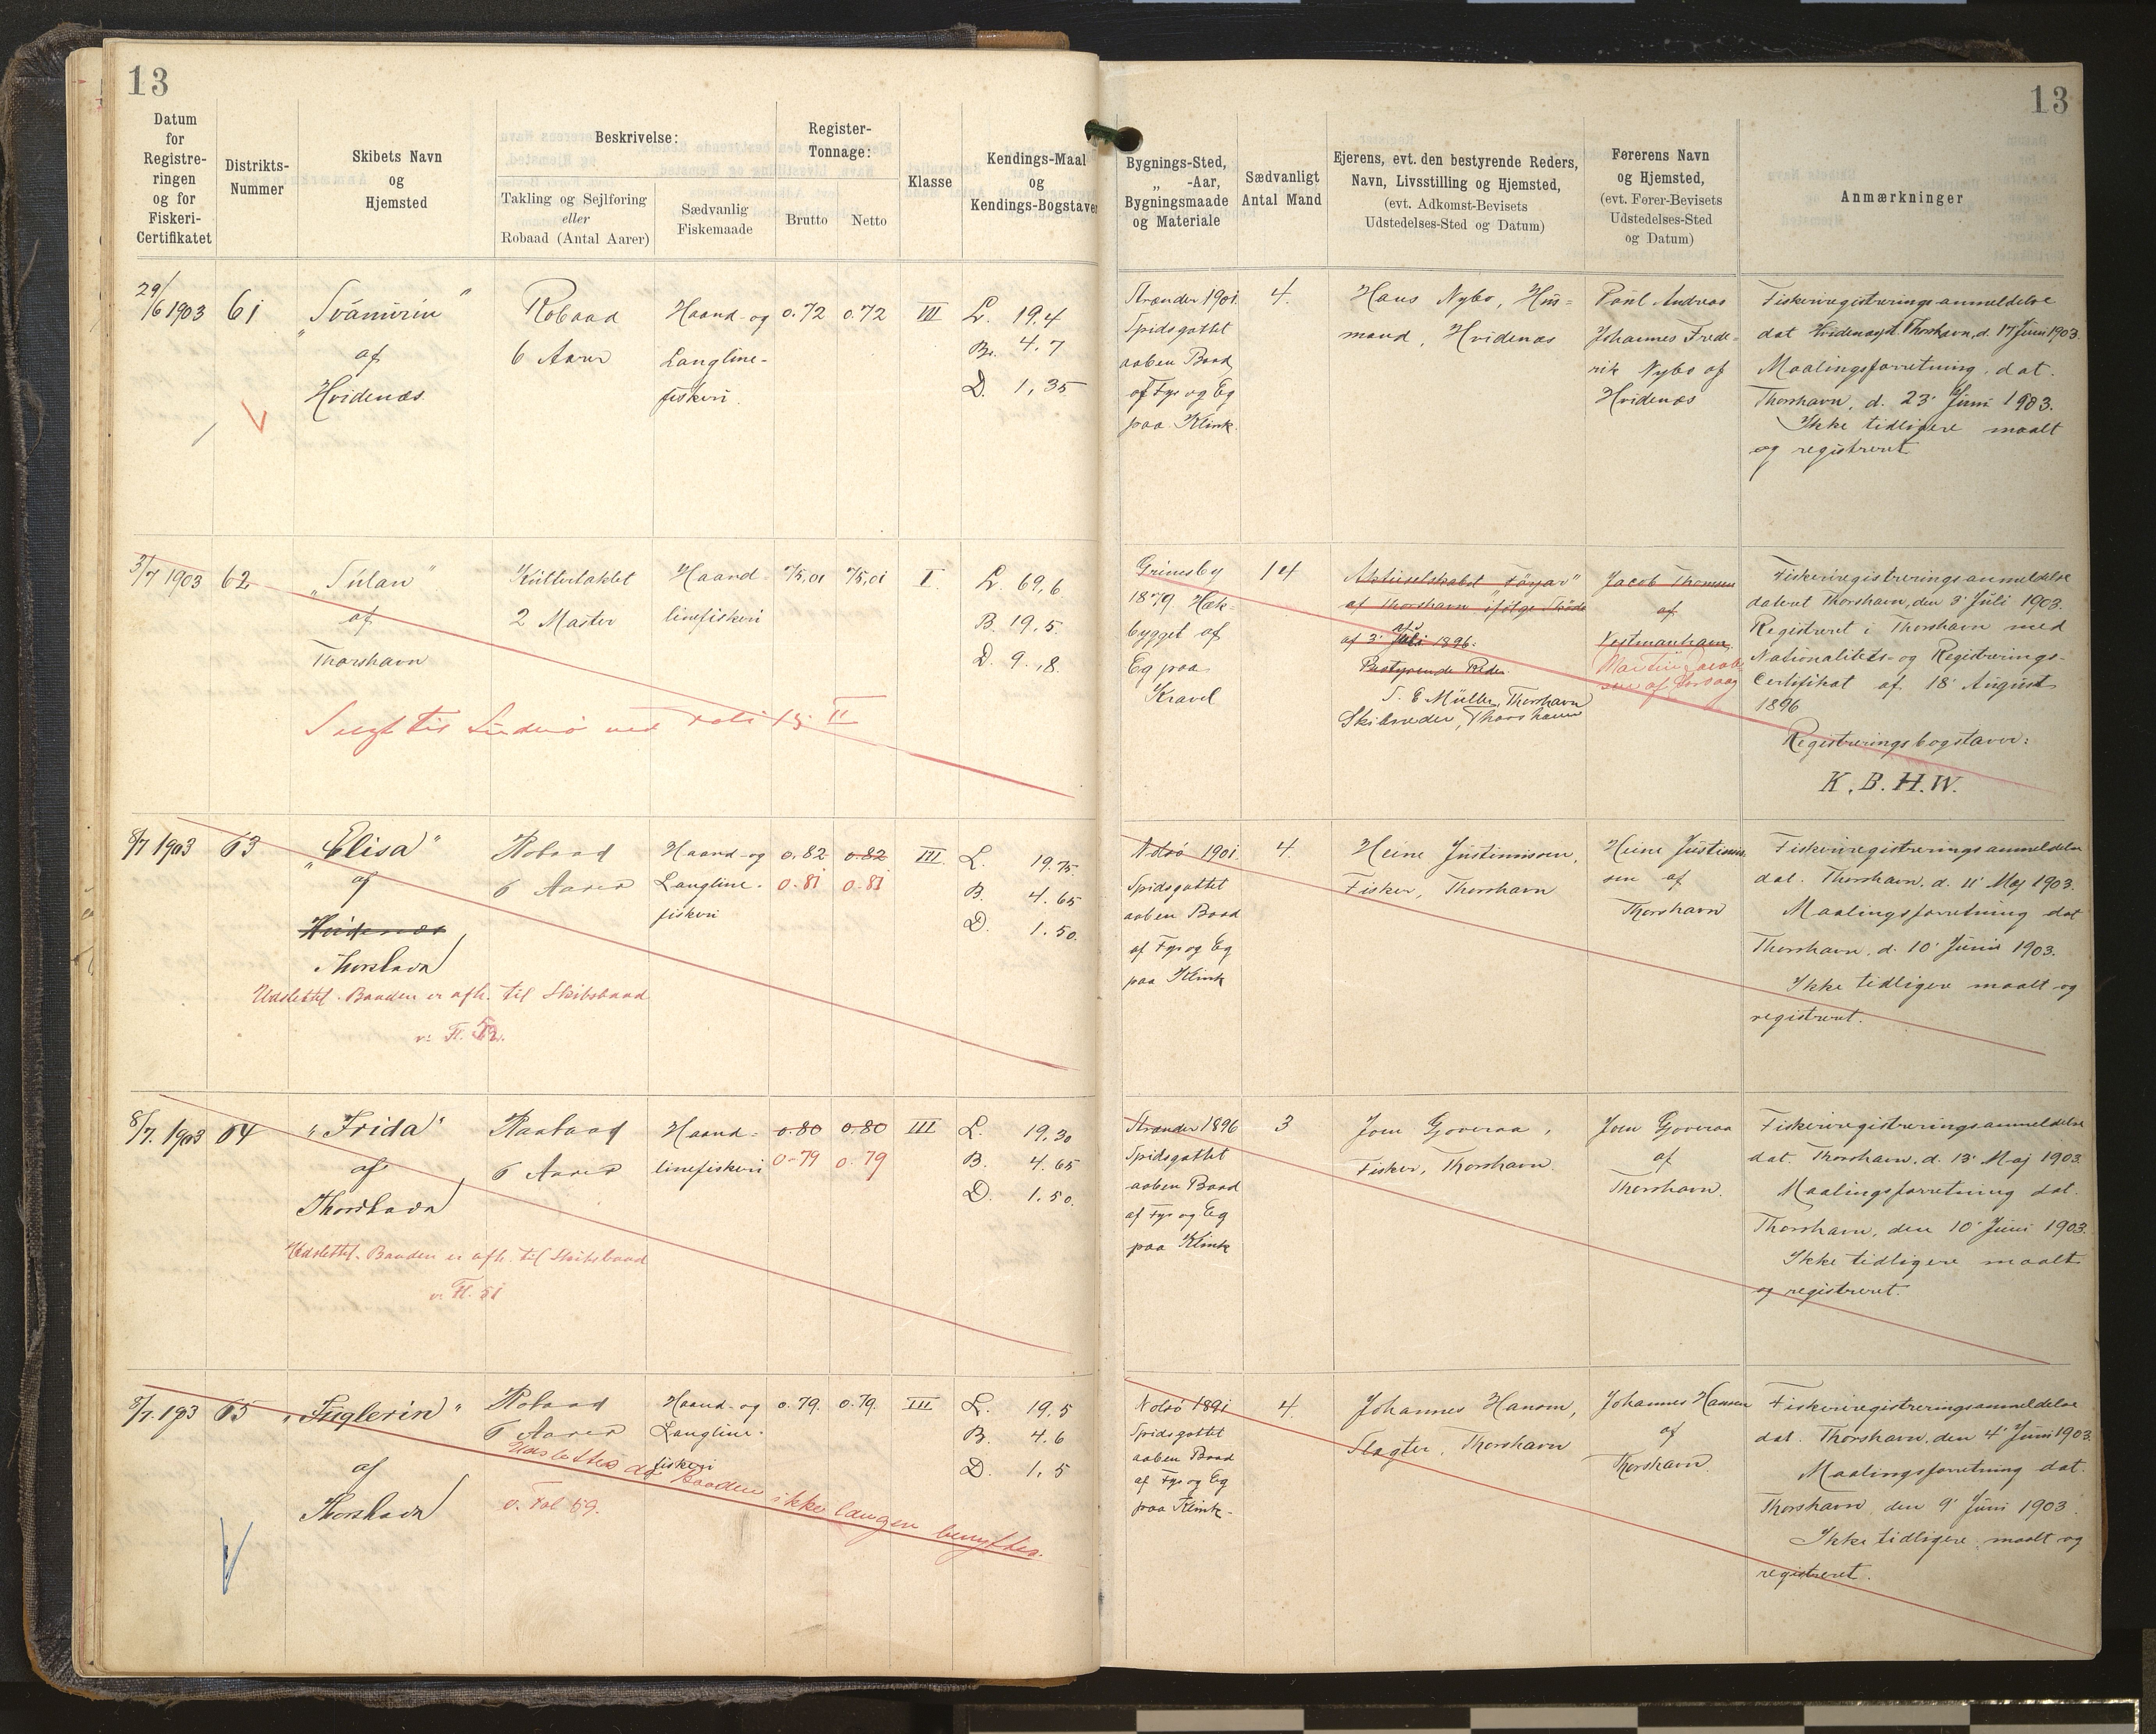 13
13
Datum
for
Registre-
ringen
og for
Fiskeri-
Certifikatet
Distrikts-
Nummer
Skibets Navn
og
Hjemsted
Beskrivelse:
Takling og Sejlføring
eller
Robaad (Antal Aarer)
Sædvanlig
Fiskemaade
Register-
Tonnage:
Brutto
Netto
Klasse
Kendings-Maal
og
Kendings-Bogstaver
Bygnings-Sted,
„ -Aar,
Bygningsmaade
og Materiale
Sædvanligt
Antal Mand
Ejerens, evt. den bestyrende Reders,
Navn, Livsstilling og Hjemsted,
(evt. Adkomst-Bevisets
Udstedelses-Sted og Datum)
Førerens Navn
og Hjemsted,
(evt. Fører-Bevisets
Udstedelses-Sted
og Datum)
Anmærkninger
29/6 1903
61
„Svanurin“
af
Hvidenæs
Robaad
6 Aarer
Haand- og
Langline-
fiskeri.
0.72
0.72
III
L. 19.4
Br. 4.7
D. 1,35
Strænder 1901.
Spidsgattet
aaben Baad
af Fyr og Eg
paa Klink.
4.
Hans Nybo, Hus-
mand, Hvidenæs
Poul Andreas
Johannes Frede-
rik Nybo af
Hvidenæs
Fiskeriregistreringsanmeldelse
dat Hvidenæs pt. Thorshavn, d. 17 Juni 1903.
Maalingsforretning, dat.
Thorshavn, d. 23' Juni 1903.
Ikke tidligere maalt
og registreret
3/7 1903
62
„Sulan“
af
Thorshavn
Kuttertaklet
2 Master
Haand-
linefiskeri
75,01
75,01
I
L. 69,6
B. 19,5.
D. 9.,8.
Solgt til Suderø
Grimsby
1879. Hæk-
bygget af
Eg paa
Kravel
14
Aktieselskabet „Føyar“
af Thorshavn ifølge Skøde
af 3' Juli 1896.
Bestyrende Reder
Müller, Thorshavn
Skibsreder, Thorshavn
Jacob Thomsen
af
Vestmanhavn
Fiskeriregistreringsanmeldelse
dateret Thorshavn, den 3' Juli 1903.
Registreret i Thorshavn med
Nationalitets- og Registrerings-
Certifikat af 18' August
1896
Registreringsbogstaver:
K. B. H. W.
8/7 1903
63
„Elisa“
af
Hvidenæs
Thorshavn
Robaad
6 Aarer
Haand- og
Langline-
fiskeri
0.82
0.82
0.81
0.81
III.
L. 19.75
B. 4.65
D. 1.50.
Udslettet. Baaden er afh. til Skibsbaad
Nolsø 1901.
Spidsgattet
aaben Baad
af Fyr og Eg
paa Klink
4.
Heine Justinussen,
Fisker, Thorshavn
Heine Justinus-
sen af
Thorshavn
Fiskeriregistreringsanmeldelse
dat. Thorshavn, d. 11' Maj 1903.
Maalingsforretning dat
Thorshavn, d. 10' Juni 1903.
Ikke tidligere maalt og
registreret.
8/7. 1903
64
„Frida“
af
Thorshavn
Robaad
6 Aarer
Haand-
linefiskeri
0.80
0.80
0.79
0.79
III
L. 19,30
B. 4.65
D. 1.50.
Udslettet. Baaden er afh. til Skibsbaad
v. Fl. 51
Strænder 1896
Spidsgattet
aaben Baad
af Fyr og Eg
paa Klink
3
Joen Gøveraa,
Fisker, Thorshavn.
Joen Gøveraa
af
Thorshavn.
Fiskeriregistreringsanmeldelse
dat. Thorshavn, d. 13' Maj 1903.
Maalingsforretning dat.
Thorshavn, den 10' Juni 1903.
Ikke tidligere maalt
og registreret.
8/7. 1903
65
„Fuglerin“
af
Thorshavn
Robaad
6 Aarer
Haand- og
Langline-
fiskeri
0.79.
0.79.
III
L. 19,5
B. 4.6
D. 1,5
Udslettes da Baaden ikke længer benyttes.
v. Fol 59.
Nolsø 1891
Spidsgattet
aaben Baad
af Fyr og Eg
paa Klink.
4.
Johannes Hansen,
Slagter, Thorshavn
Johannes Hansen
af
Thorshavn.
Fiskeriregistreringsanmeldelse
dat. Thorshavn, den 4' Juni 1903.
Maalingsforretning dat.
Thorshavn, den 9' Juni 1903.
Ikke tidligere maalt og
registreret.